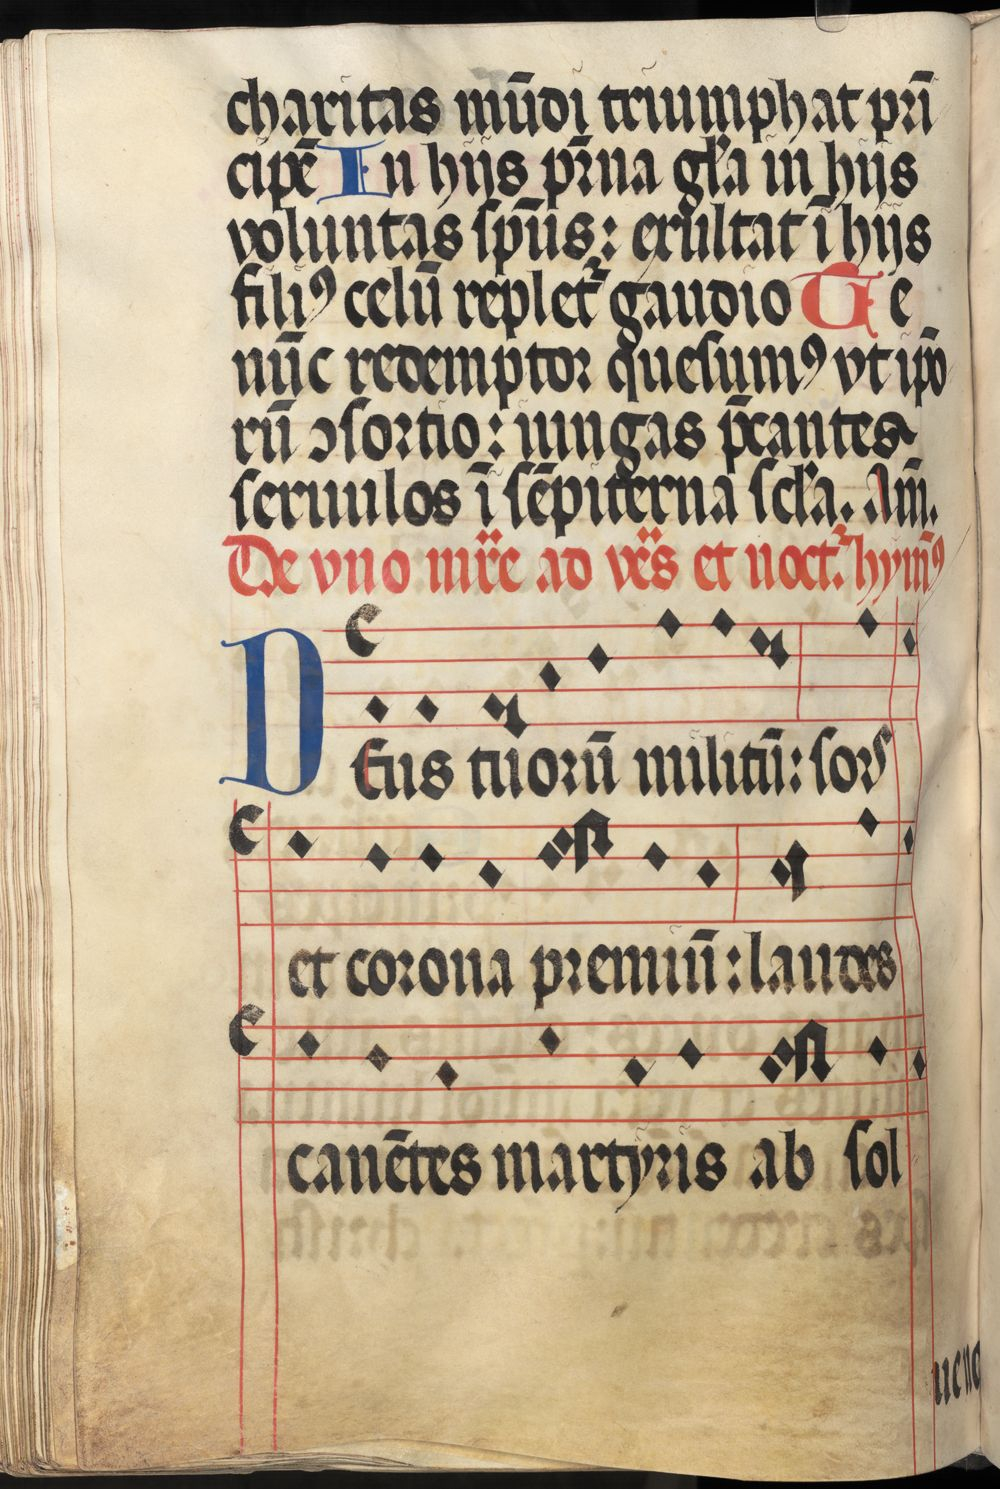 charitas mūdi triumphat prī
cipē In hijs pr̄na gl̄a in hijs
voluntas spūs: exultat ī hijs
filiꝰ celū repletᷣ gaudio Te
nūc redemptor quesumꝰ vt ip̄o
rū ↄsortio: iungas p̄cantes
seruulos ī sēpiterna scl̄a. Am̄.
De vno mr̄e ad vr̄s et noct. hym̄ꝰ
DEus tuorū militū: sors
et corona premiū: laudes
canētes martyris ab sol